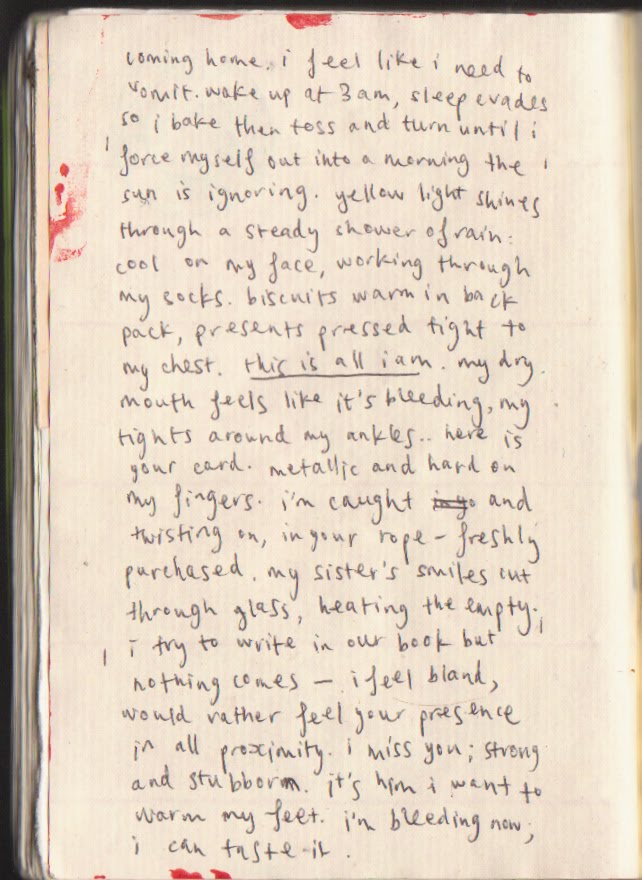 coming home. i feel like i need to
vomit. wake up at 3am, sleep evades
so i bake then toss and turn until i
force myself out into a morning the
sun is ignoring. yellow light shines
through a steady shower of rain:
cool on my face, working through
my socks. biscuits warm in back
pack, presents pressed tight to
my chest. this is all i am. my dry
mouth feels like it's bleeding, my
tights around my ankles.. here is
your card. metallic and hard on
my fingers. i'm caught and
twisting on, in your rope - freshly
purchased. my sister's smiles cut
through glass, heating the empty.
i try to write in our book but
nothing comes — i feel bland,
would rather feel your presence
in all proximity. i miss you; strong
and stubborn. it's him i want to
warm my feet. i'm bleeding now;
i can taste it.